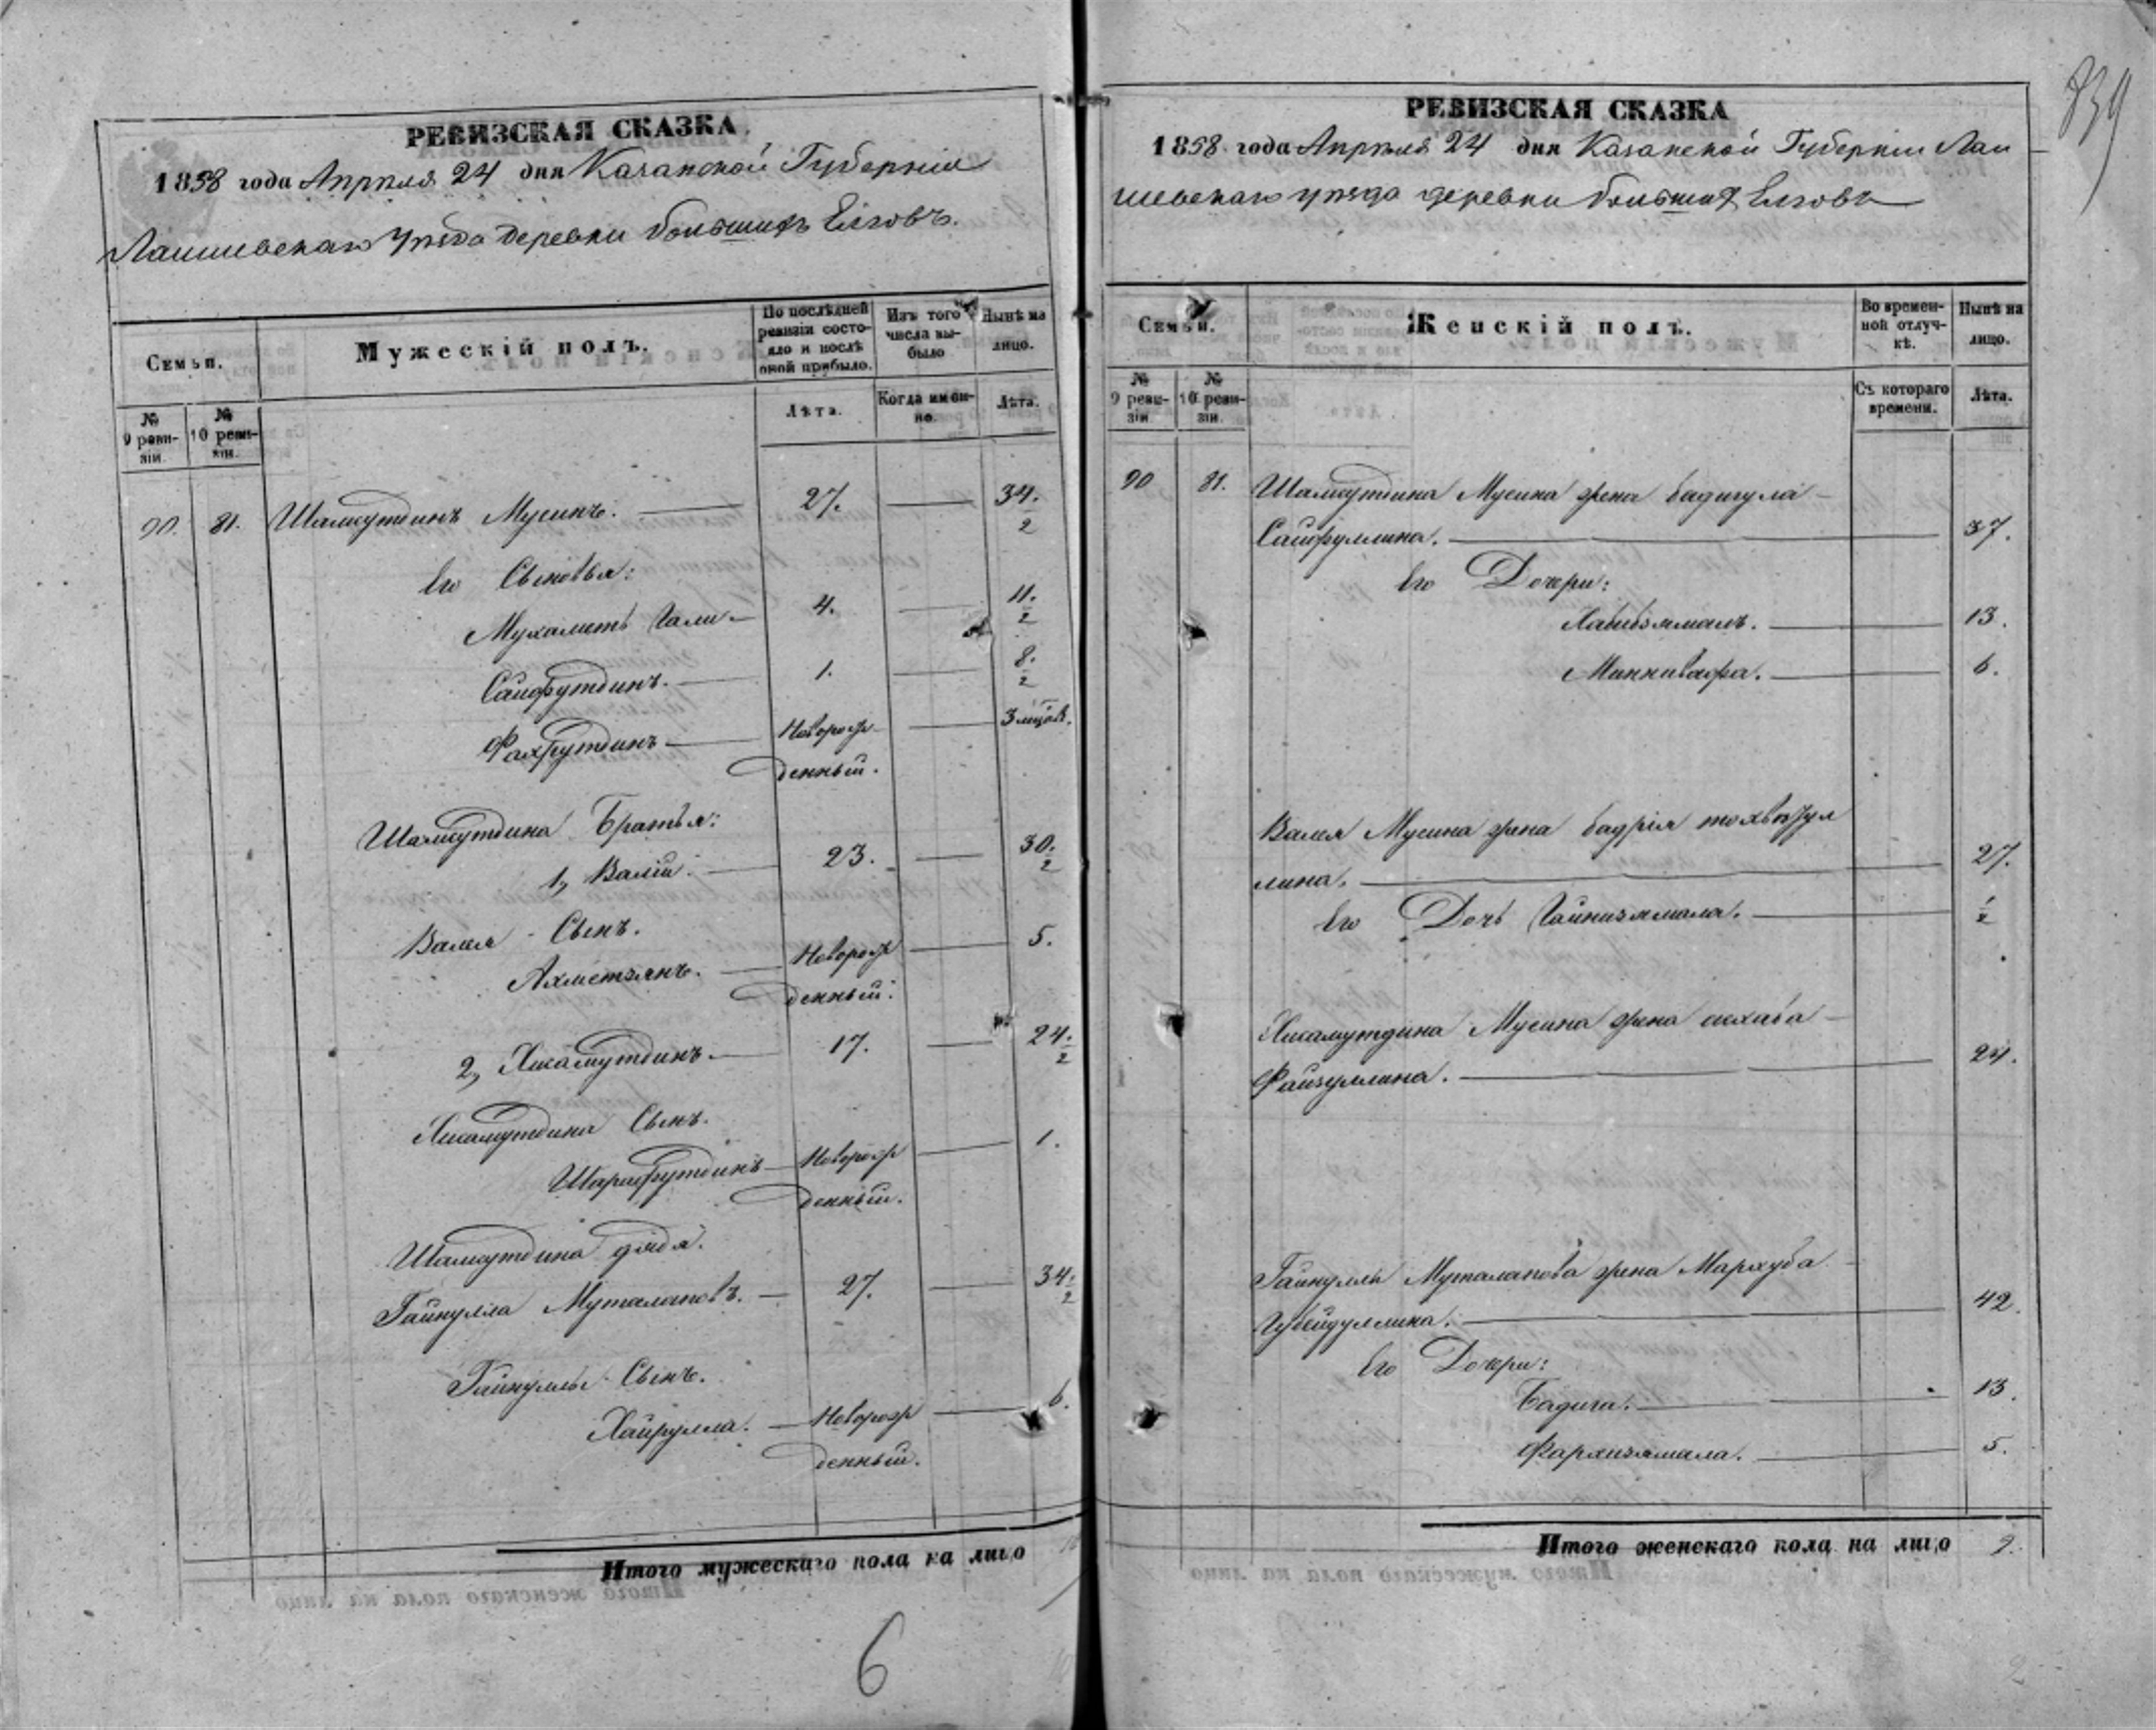 839
РЕВИЗСКАЯ СКАЗКА
1858 года Апреля 24 дня Казанской Губернiи
Лаишевскаго Уѣзда деревни большихъ Елговъ.
Семьи.
Мужескiй полъ.
По послѣдней ревизiи состояло и послѣ оной прибыло.
Изъ того числа выбыло
Нынѣ на лицо.
№ 9 ревизiи.
№ 10 ревизiи.
Лѣта.
Когда именно.
Лѣта.
90. 81. Шамсутдинъ Мусинъ. 27. 34. 1/2
Его Сыновья:
Мухаметъ Гали 4. 11. 1/2
Сайфутдинъ. 1. 8. 1/2
Фахрутдинъ Новорож 3 мцов.
денный.
Шамсутдина Братья:
1, Валiй. 23. 30. 1/2
Валея Сынъ.
Ахметзянъ. Новорож 5.
денный.
2, Хисамутдинъ. 17. 24. 1/2
Хисамутдина Сынъ.
Шарафутдинъ Новорож 1.
денный.
Шамсутдина дядя.
Гайнулла Муталаповъ. 27. 34. 1/2
Гайнуллы Сынъ.
Хайрулла. Новорож 6.
денный.
Итого мужескаго пола на лицо
6
РЕВИЗСКАЯ СКАЗКА
1858 года Апреля 24 дня Казанской Губернiи Лаи
шевскаго уѣзда деревни большихъ Елговъ
Семьи.
Женскiй полъ.
Во временной отлучкѣ.
Нынѣ на лицо.
№ 9 ревизiи
№ 10 ревизiи.
Съ котораго времени.
Лѣта.
90 81. Шамсутдина Мусина жена
Сайфуллина. 37.
Его Дочери:
Хабибзямалъ. 13.
Миннивафа. 6.
Валея Мусина жена бадрiя
лина. 27.
Его Дочь Гайнизямала. 1/2
Хисамутдина Мусина жена асхаба
Файзуллина. 24.
Гайнуллы Муталапова жена Мархуба
Губейдуллина. 42.
Его Дочери:
Бадига. 13.
Фархизямала. 5.
Итого женскаго пола на лицо 9.